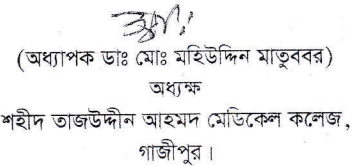 (অধ্যাপক ডাঃ মোঃ মহিউদ্দিন মাতুববর)
অধ্যক্ষ
শহীদ তাজউদ্দীন আহমদ মেডিকেল কলেজ,
গাজীপুর।